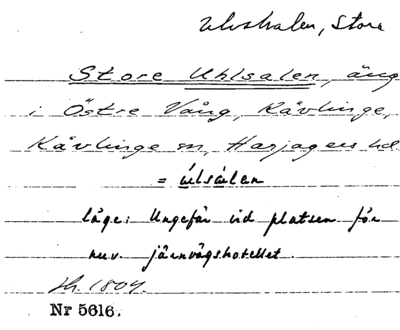 Ulvshalen, Store
Store Uhlsalen, äng
i Östre Vång, Kävlinge,
Kävlinge sn, Harjagers hd
= úlsálen
läge: Ungefär vid platsen för
nuv. järnvägshotellet.
Sk. 1804.
Nr 5616.